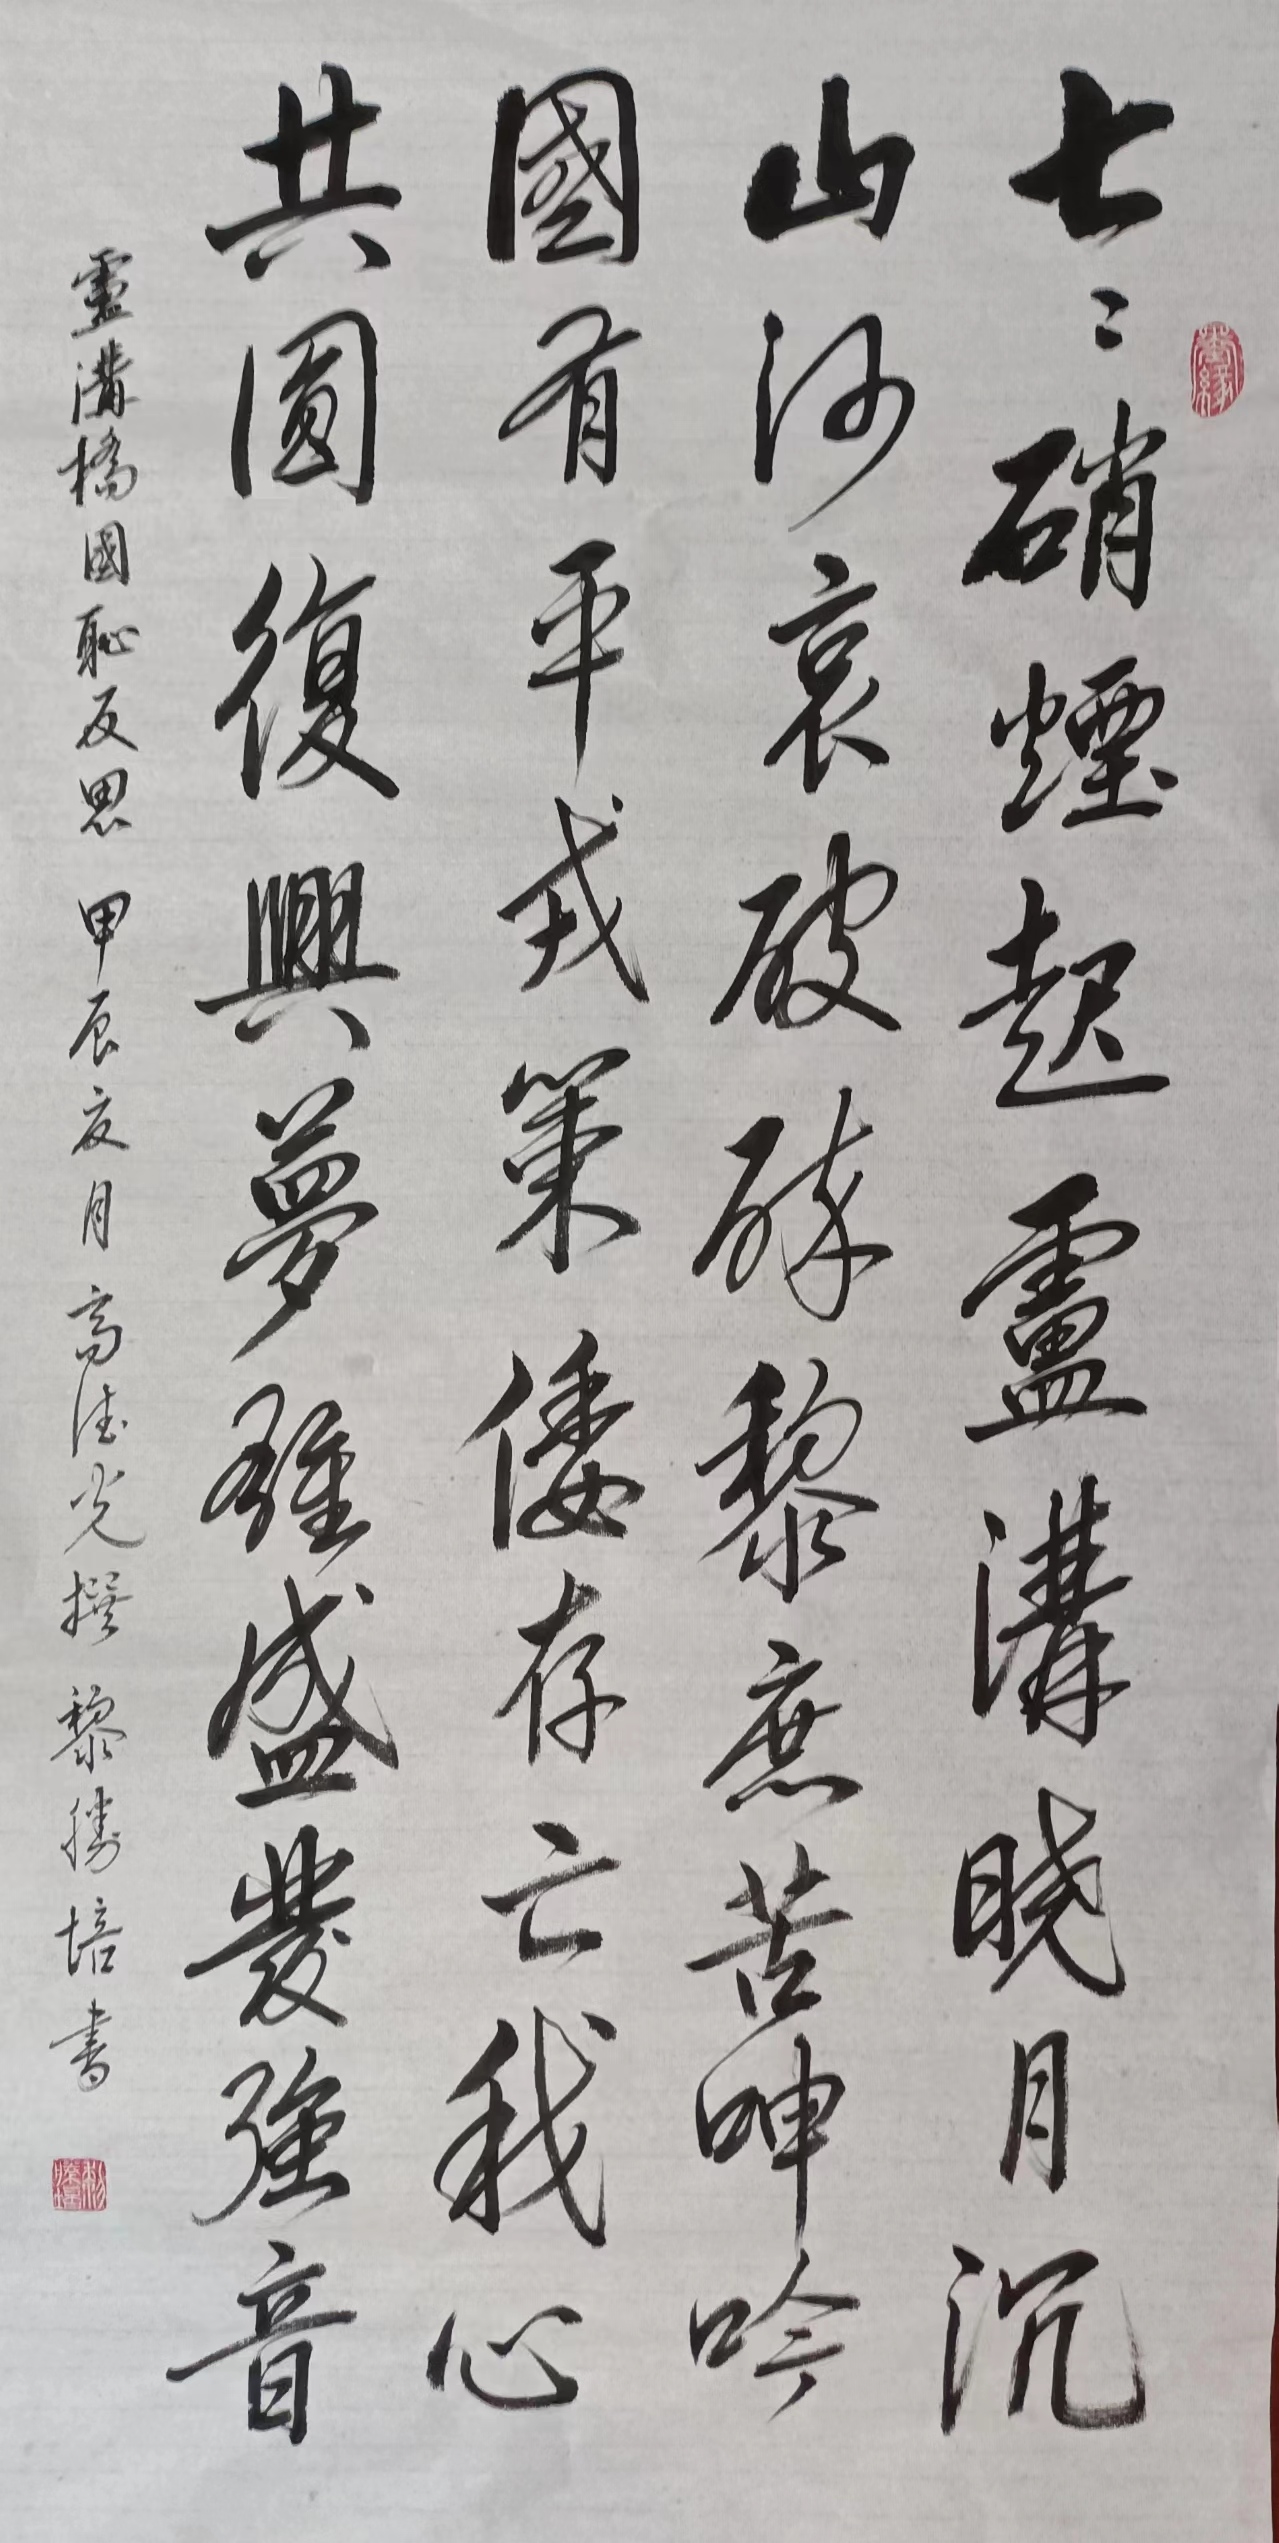 七々硝煙起盧溝曉月沉
山河哀破碎黎庶苦呻吟
國有平戎策倭存亡我心
共圓復興夢強盛發強音
盧溝橋國恥反思 甲辰夏月 高德光撰 黎勝培書